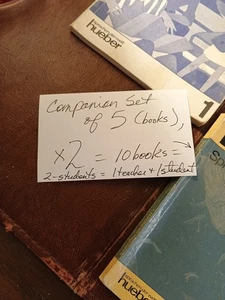 hueber
Companion Set
of 5 (books),
x2 = 10 books =→
2-students = 1 teacher + 1 student
1
Sp
hueber